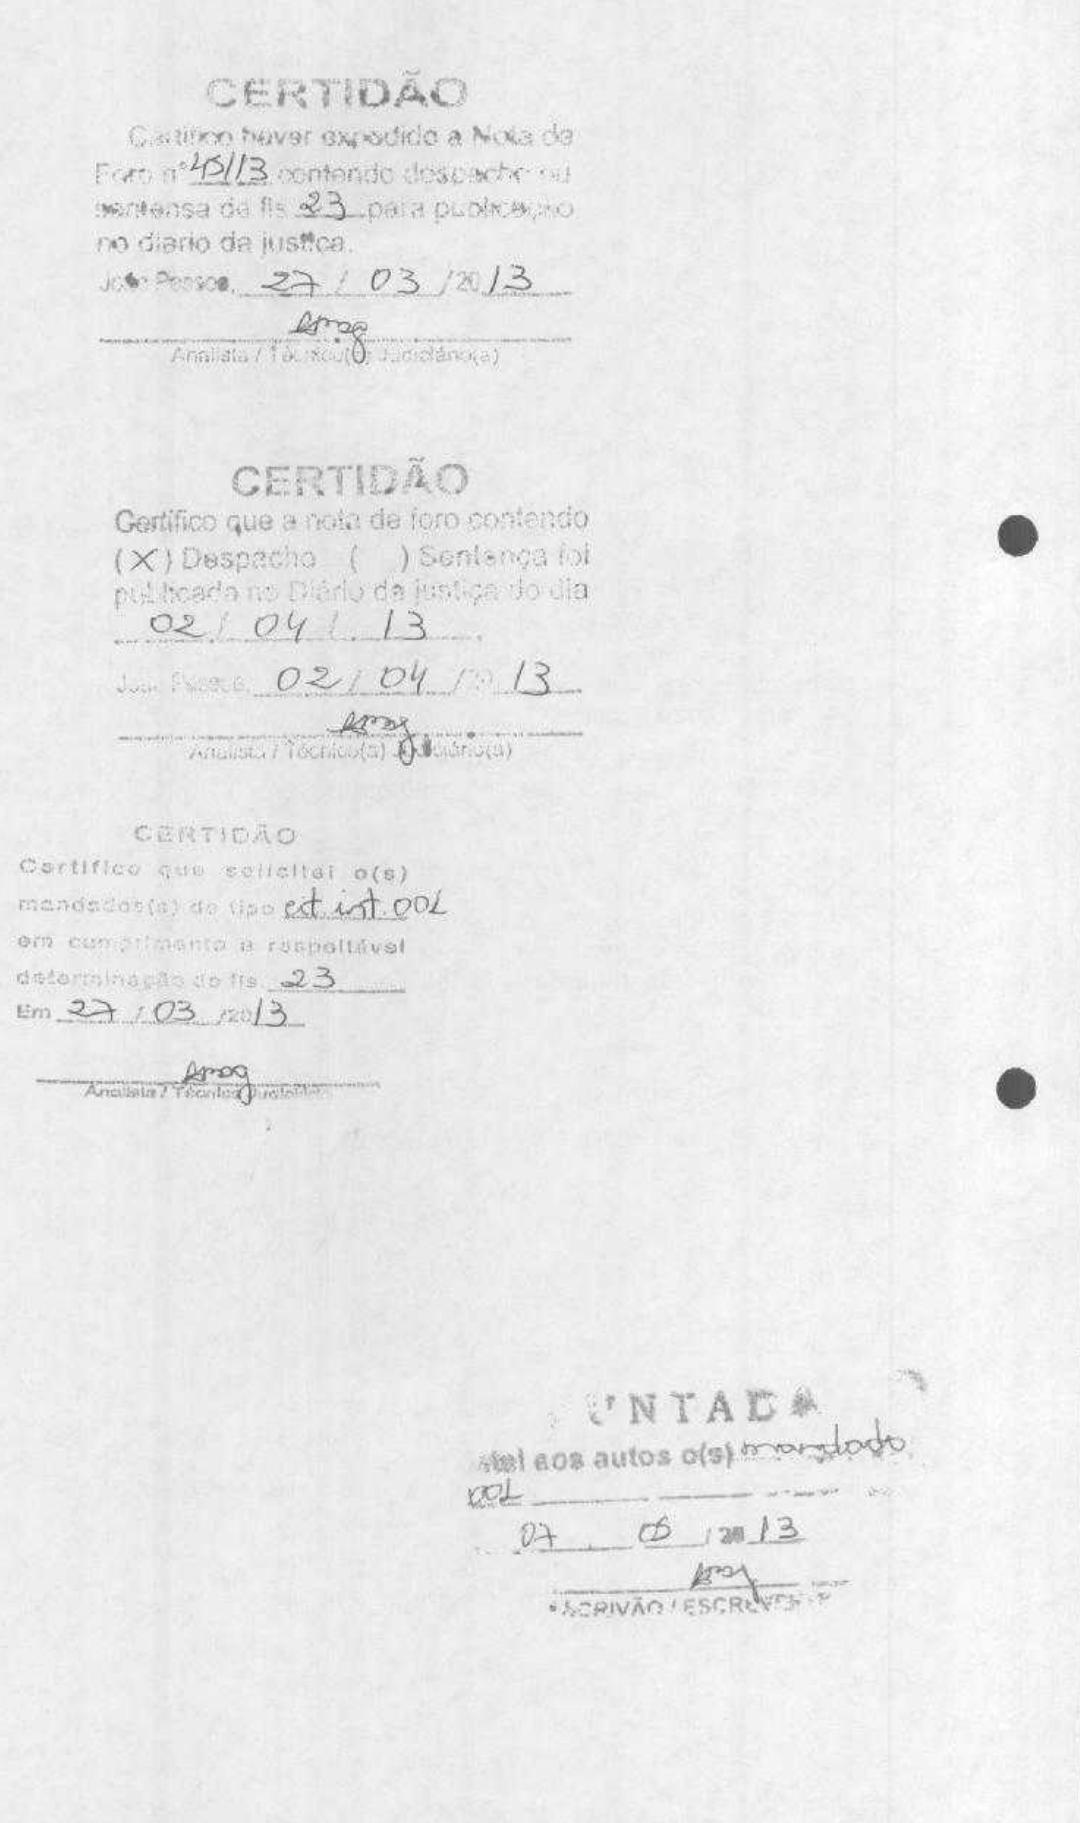 CERTIDÃO
Certifico haver expedido a Nota de
Foro nº 45/13 contendo despacho ou
sentensa de fls 23 para publicação
no diario da justica.
João Pessoa, 27 / 03 /20 13
Analista / Técnico(a) Judiciário(a)
CERTIDÃO
Certifico que a nota de foro contendo
(X) Despacho ( ) Sentença foi
publicada no Diário da justiça do dia
02 / 04 / 13
João Pessoa, 02 / 04 /20 13
Analista / Técnico(a) Judiciário(a)
CERTIDÃO
Certifico que solicitei o(s)
mandados(s) do tipo 
em cumprimento a respeitável
determinação de fls. 23
Em 27 / 03 /20 13
Analista / Técnico Judiciário
UNTADA
aos autos o(s) mandado
001
07 05 /20 13
ESCRIVÃO / ESCREVENTE